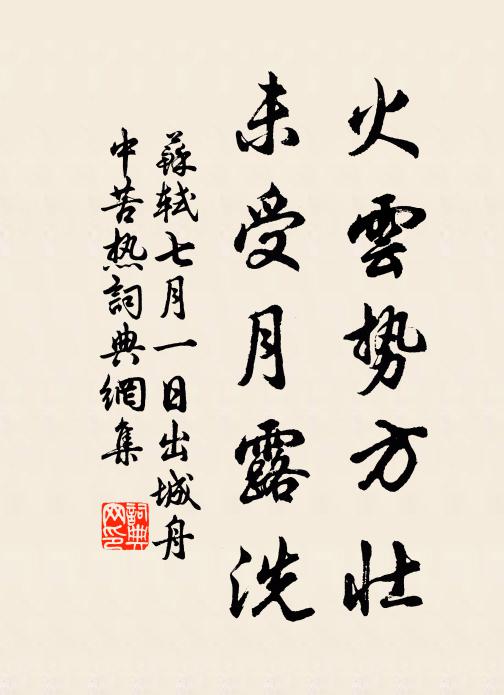 火雲勢方壯
未受月露洗
蘇軾七月一日出城舟
中苦热詞典網集
詞典
网印